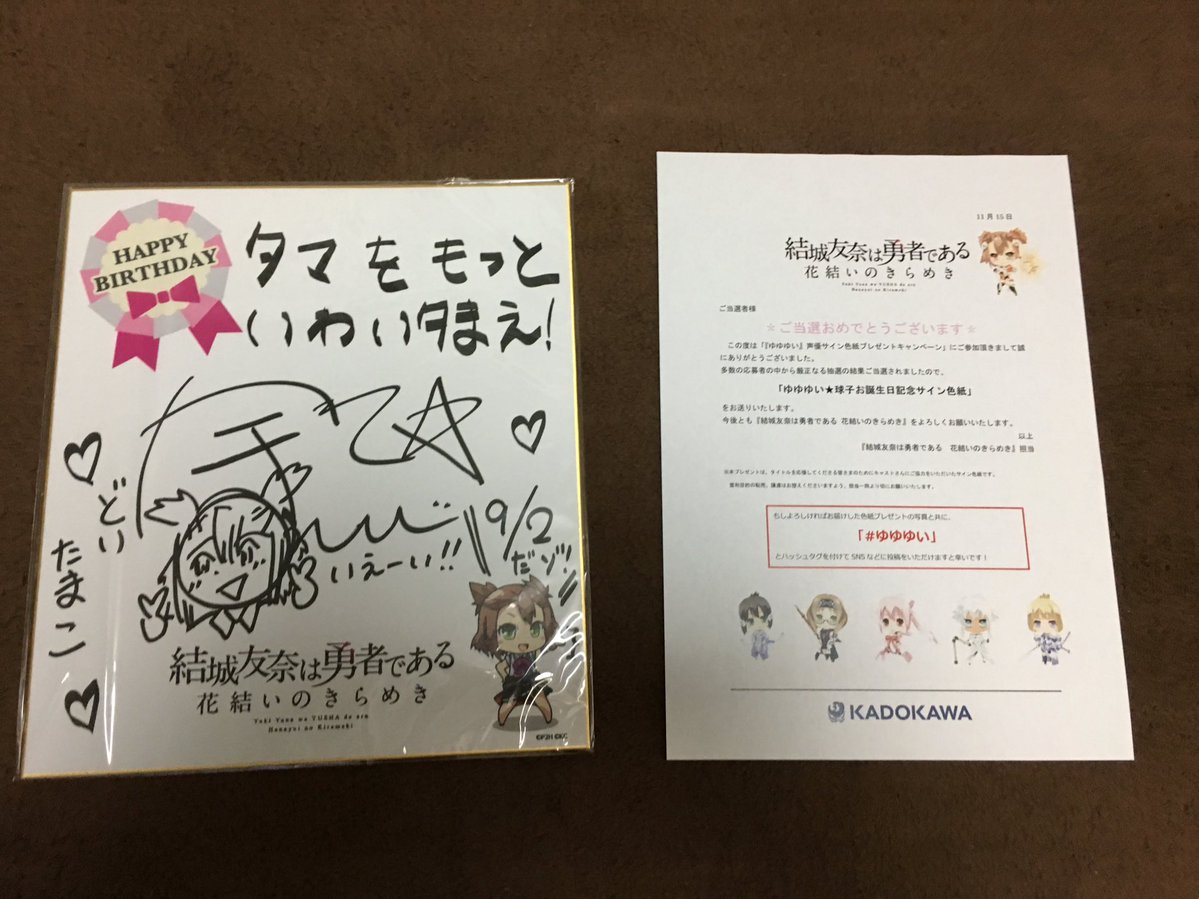 HAPPY
BIRTHDAY
タマをもっと
いわいタまえ!
どい
たまこ
いえーい!!
9/2
だゾ!!
結城友奈は勇者である
花結いのきらめき
Yuki Yuna wa YUSHA de aru
Hanayui no Kirameki
©P2H ©KC
11月15日
結城友奈は勇者である
花結いのきらめき
Yuki Yuna wa YUSHA de aru
Hanayui no Kirameki
ご当選者様
＊ご当選おめでとうございます＊
この度は「『ゆゆゆい』声優サイン色紙プレゼントキャンペーン」にご参加頂きまして誠
にありがとうございました。
多数の応募者の中から厳正なる抽選の結果ご当選されましたので、
「ゆゆゆい★球子お誕生日記念サイン色紙」
をお送りいたします。
今後とも『結城友奈は勇者である 花結いのきらめき』をよろしくお願いいたします。
以上
『結城友奈は勇者である 花結いのきらめき』担当
※本プレゼントは、タイトルを応援してくださる皆さまのためにキャストさんにご協力をいただいたサイン色紙です。
営利目的の転売、譲渡はお控えくださいますよう、担当一同より切にお願いいたします。
もしよろしければお届けした色紙プレゼントの写真と共に、
「#ゆゆゆい」
とハッシュタグを付けて SNS などに投稿をいただけますと幸いです！
KADOKAWA